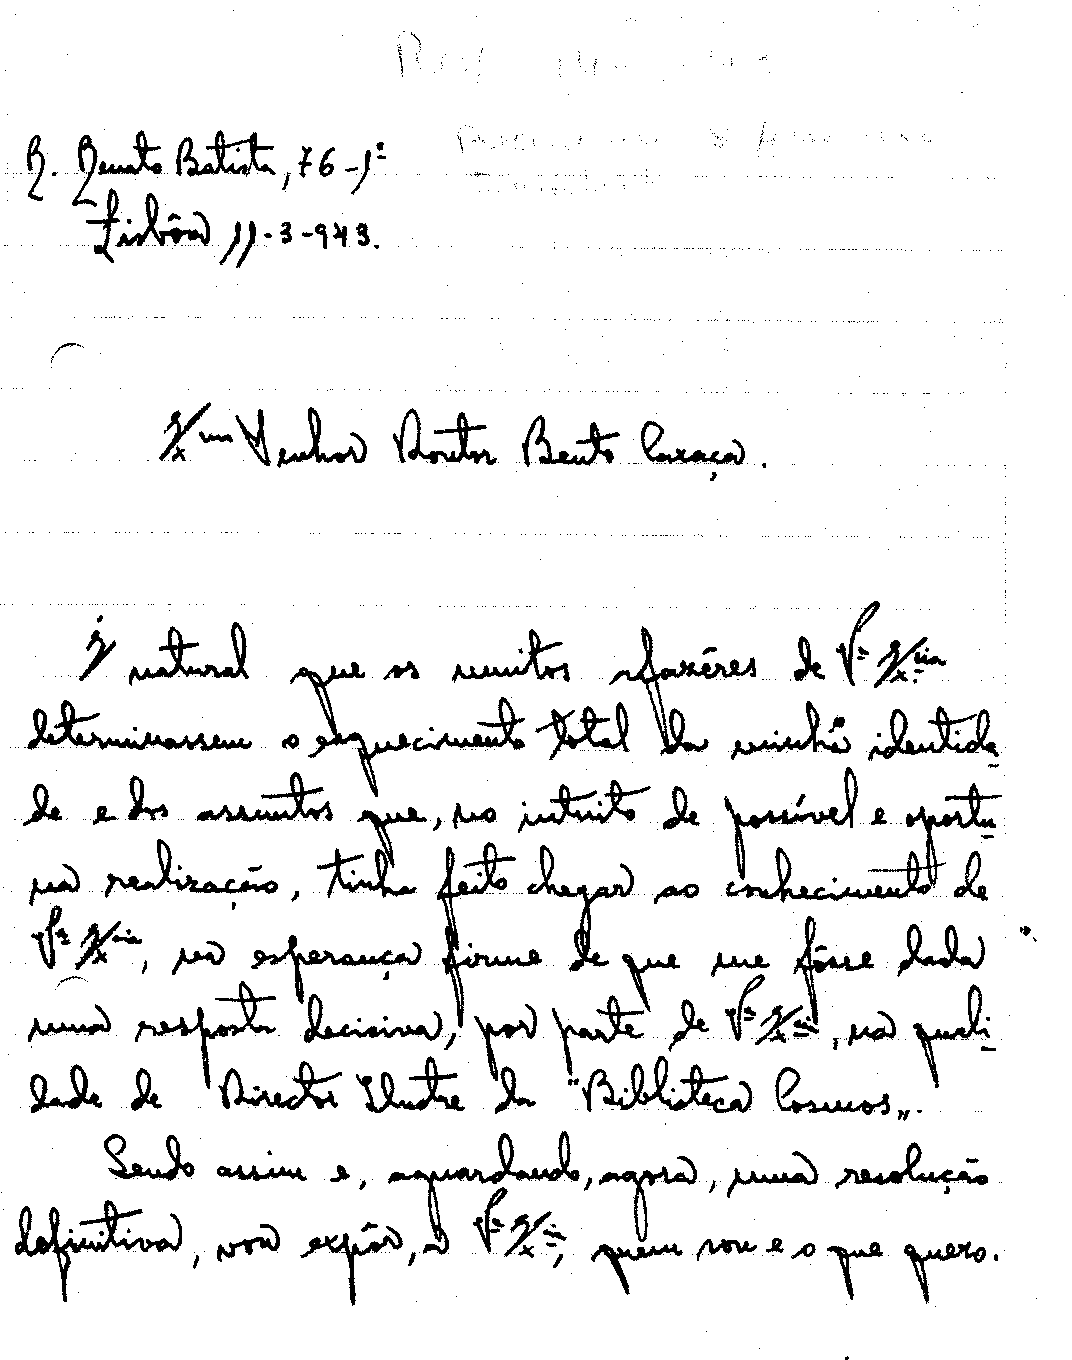 R. Renato Batista, 76-1º
Lisbôa 11-3-943.
Exmo Senhor Doutor Bento Caraça.
É natural que os muitos afazêres de Vª Exia
determinassem o esquecimento total da minha identida
de e dos assuntos que, no intuito de possível e oportu
na realização, tinha feito chegar ao conhecimento de
Vª Exia, na esperança firme de que me fôsse dada
uma resposta decisiva, por parte de Vª Exia, na quali
dade de Director Ilustre da "Biblioteca Cosmos".
Sendo assim e, aguardando, agora, uma resolução
definitiva, vou expôr, a Vª Exia, quem sou e o que quero.